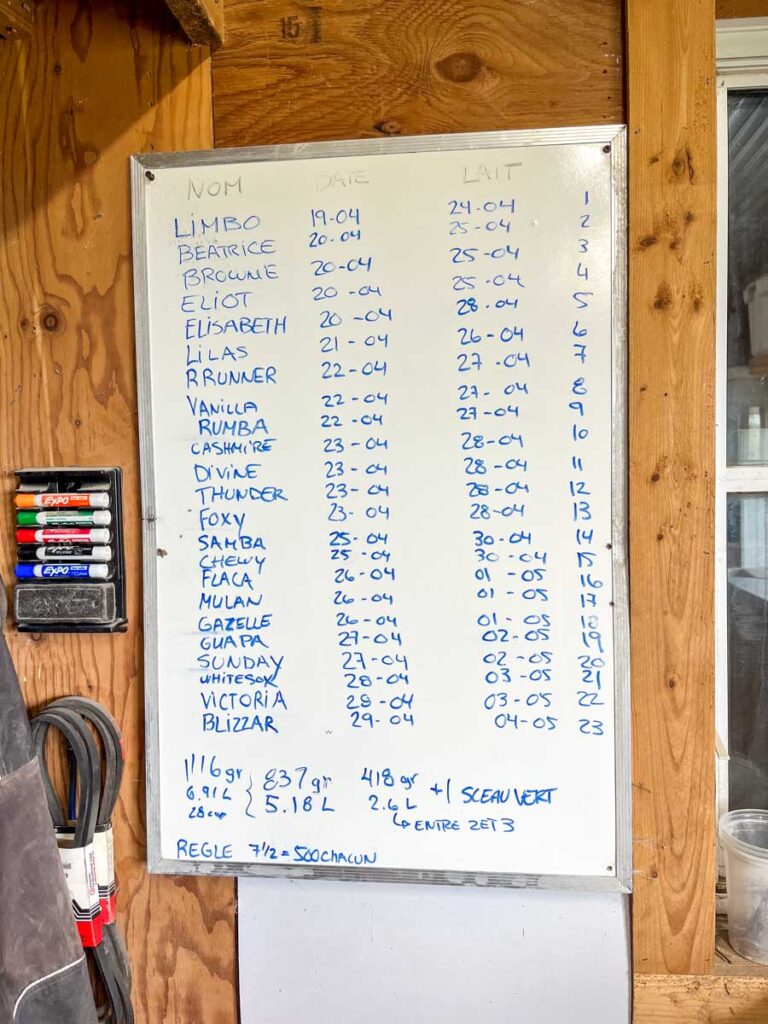 15
NOM DATE LAIT
LIMBO 19-04 24-04 1
BEATRICE 20-04 25-04 2
BROWNIE 20-04 25-04 3
ELIOT 20-04 25-04 4
ELISABETH 20-04 28-04 5
LILAS 21-04 26-04 6
RRUNNER 22-04 27-04 7
VANILLA 22-04 27-04 8
RUMBA 22-04 27-04 9
CASHMIRE 23-04 28-04 10
DIVINE 23-04 28-04 11
THUNDER 23-04 28-04 12
FOXY 23-04 28-04 13
SAMBA 25-04 30-04 14
CHEWY 25-04 30-04 15
FLACA 26-04 01-05 16
MULAN 26-04 01-05 17
GAZELLE 26-04 01-05 18
GUAPA 27-04 02-05 19
SUNDAY 27-04 02-05 20
WHITESOX 28-04 03-05 21
VICTORIA 28-04 03-05 22
BLIZZAR 29-04 04-05 23
1116 gr { 837 gr 418 gr +1 SCEAU VERT
6.91 L 5.18 L 2.6 L
28 cup ↳ ENTRE 2 ET 3
REGLE 7 1/2 = 500 CHACUN
EXPO
EXPO